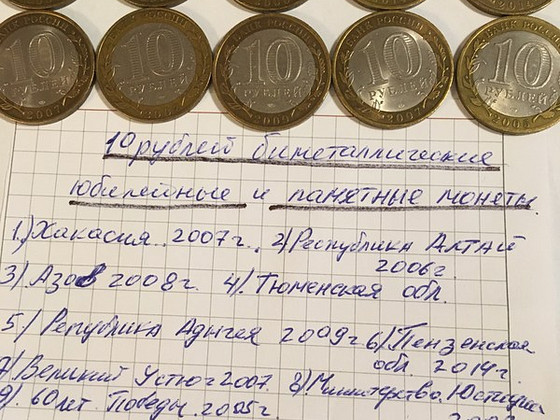 БАНК РОССИИ
10 РУБЛЕЙ
10 РУБЛЕЙ
10 РУБЛЕЙ 2009
10 РУБЛЕЙ
10 РУБЛЕЙ
10 рублей биметаллические
юбилейные и памятные монеты.
1) Хакасия. 2007г. 2) Республика Алтай
2006г.
3) Азов 2008г. 4) Тюменская обл.
5) Република Адыгея 2009г 6) Пензенская
обл. 2014г.
7) Великий Устюг 2007. 8) Министерство. Юстиции
9) 60 лет Победы. 2005г.